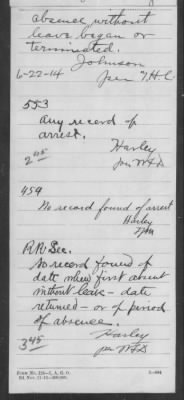 absence without
leave began or
terminated.
Johnson
6-22-14 per T.H.C.
553
Any record of
arrest.
Harley
2 05 per WFD
459
No record found of arrest
Harley
R.R. Sec.
No record found of
date when first absent
without leave - date
returned - or of period
of absence.
Harley
3 45 per WFD
3-694